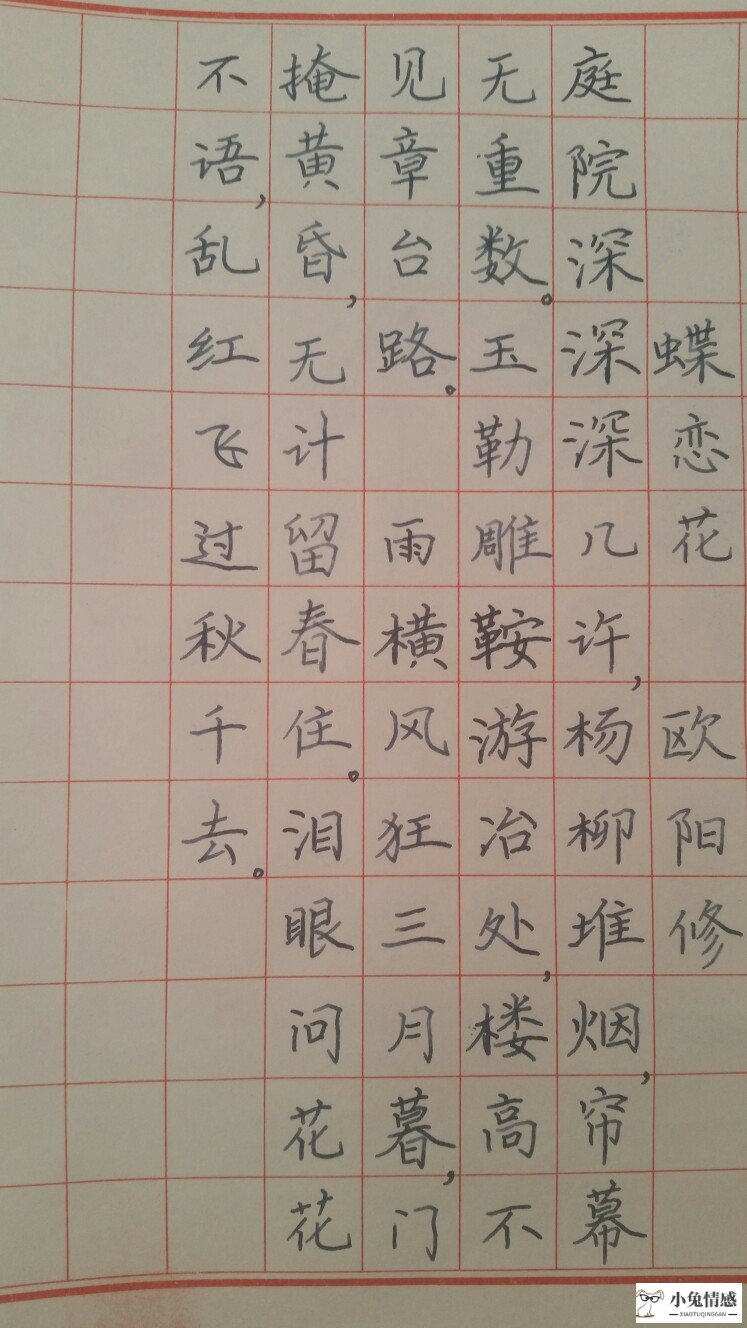 蝶恋花 欧阳修
庭院深深深几许,杨柳堆烟,帘幕
无重数。玉勒雕鞍游冶处,楼高不
见章台路。 雨横风狂三月暮,门
掩黄昏,无计留春住。泪眼问花花
不语,乱红飞过秋千去。
小兔情感
XIAOTUQINGGAN